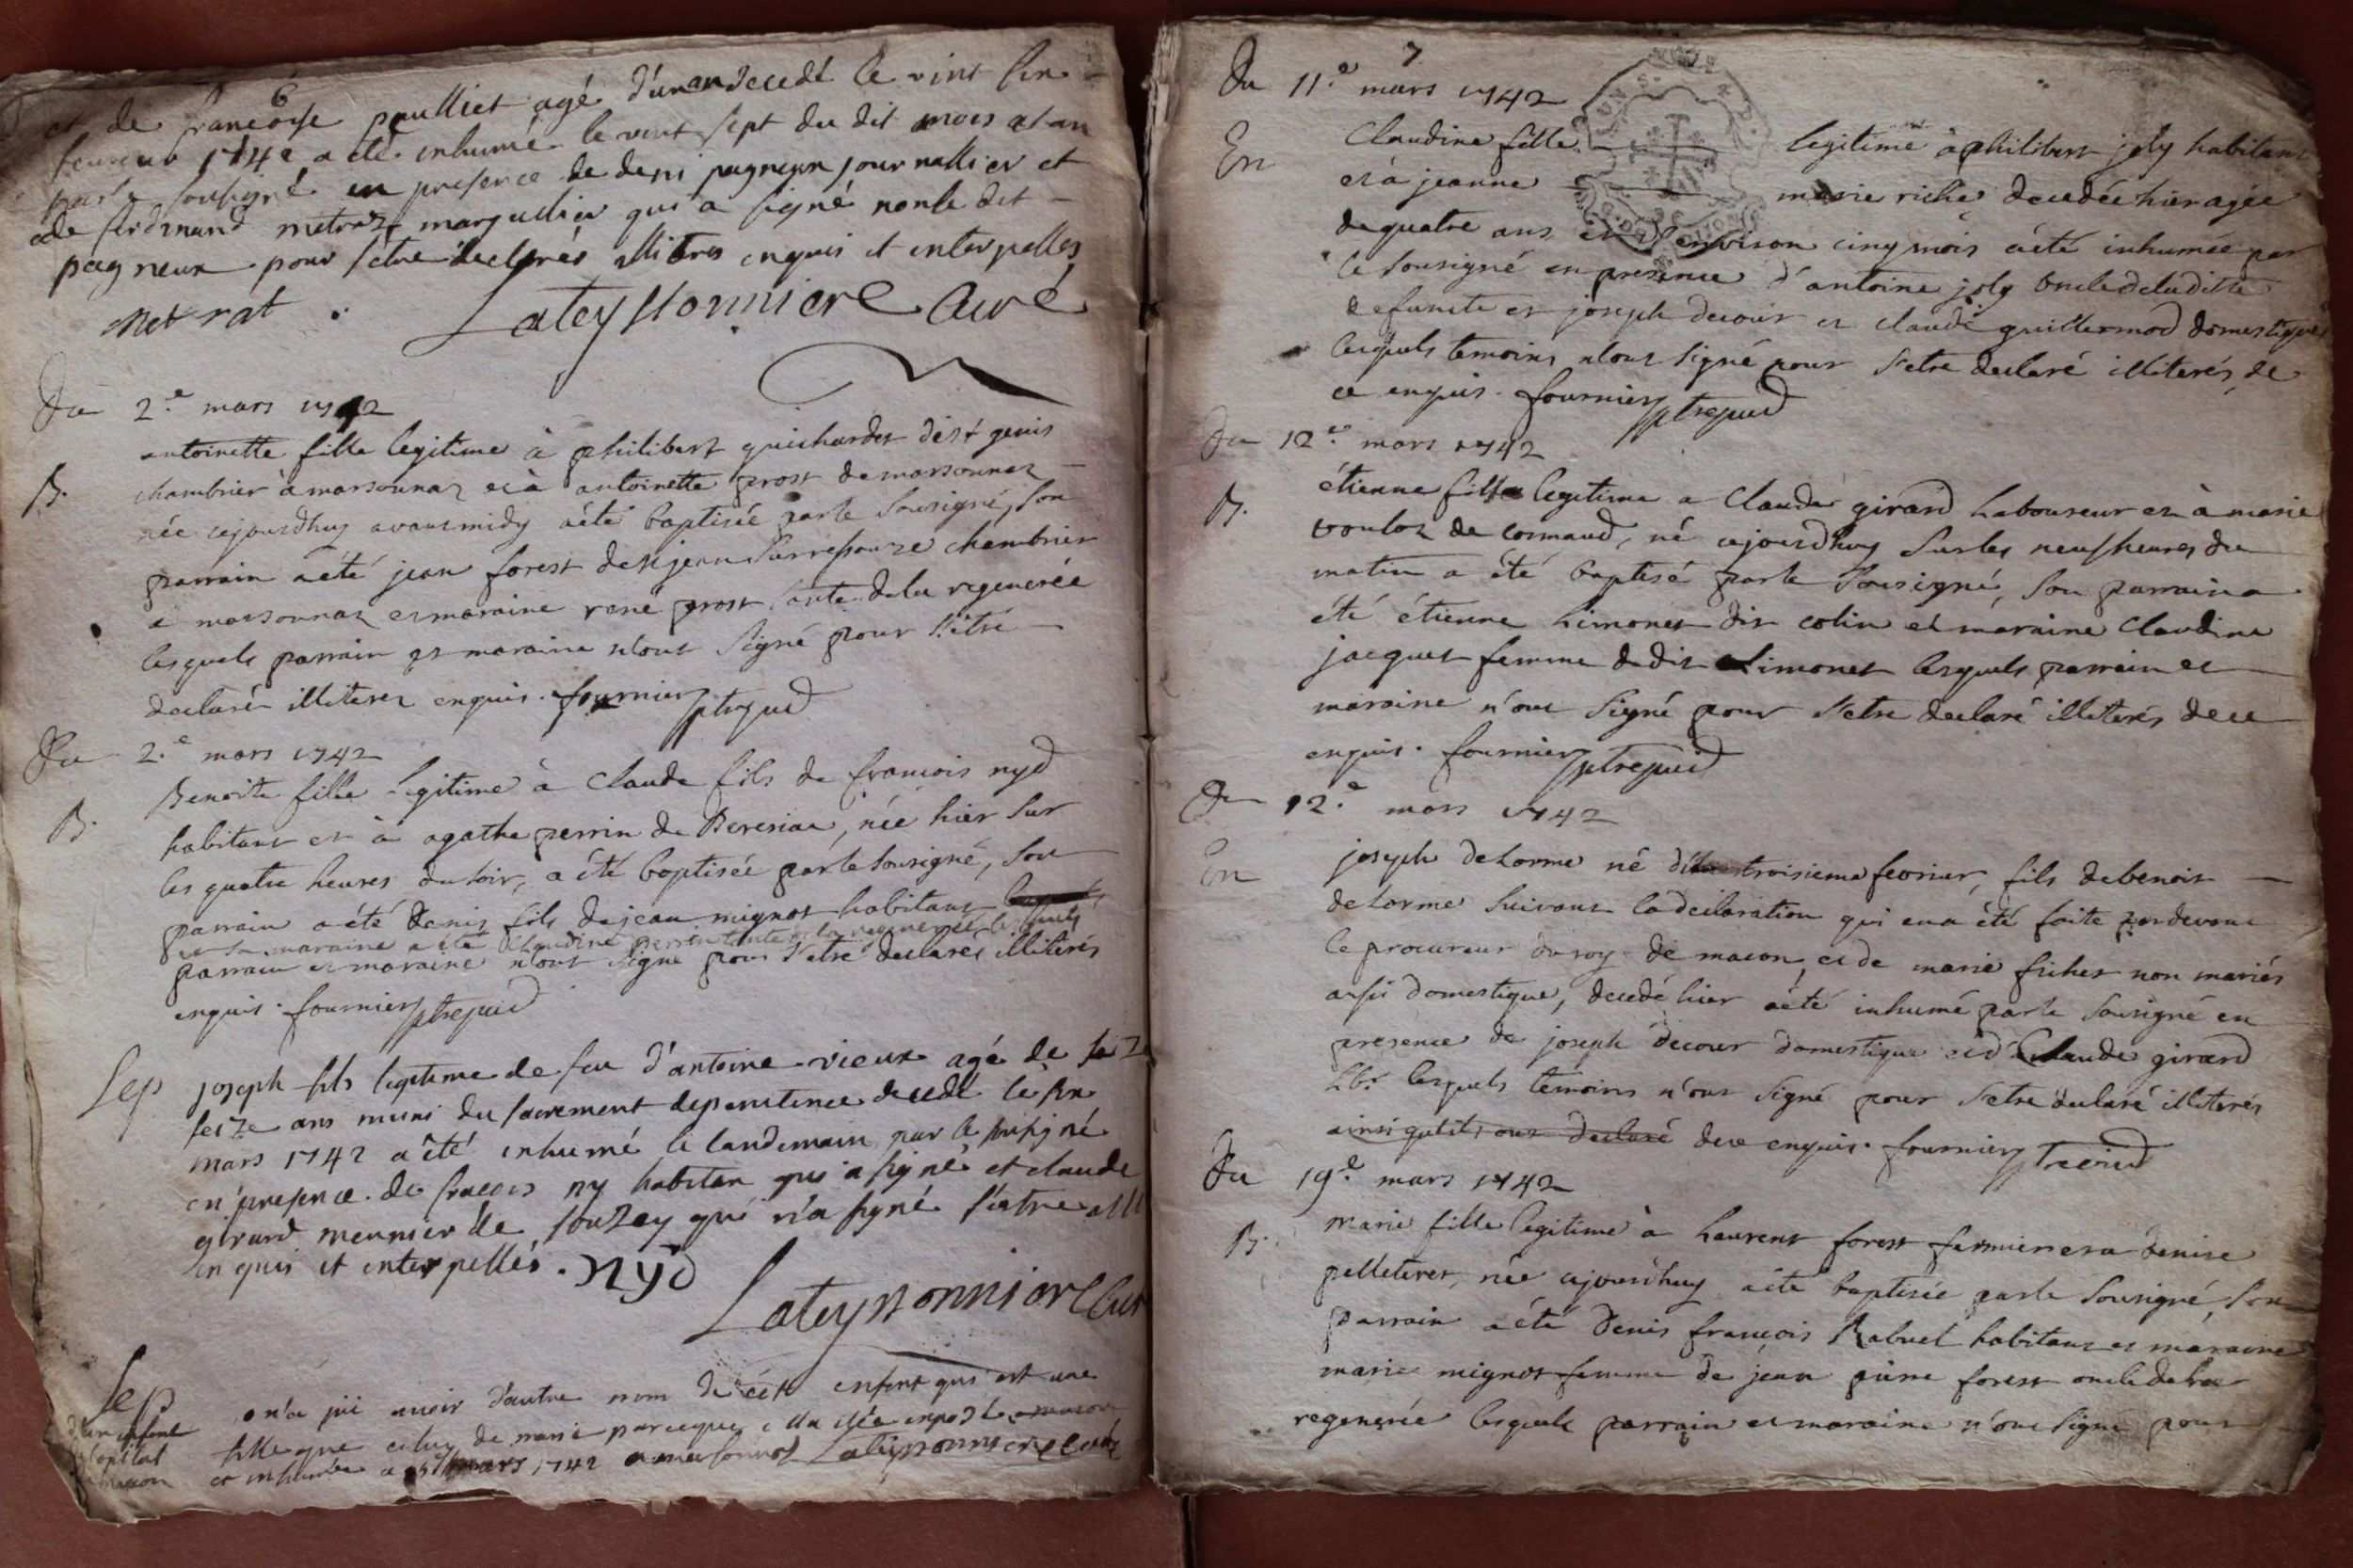 6
et de françoise paulliet agé d'un an decedé le vint sin
fevrier 1742 a été inhumé le vint sept du dit mois et an
par le sousigné en presence de deni pagneux journallier et
de ferdinand metrat margullier qui a signé non le dit
pagneux pour s'etre declarés illitres enquis et interpellés
Metrat . Lateyssonniere Curé
Du 2.e mars 1742
B.
antoinette fille legitime à philibert guichardet de st genis
chambrier à marsonnaz et à antoinette prost de marsonnaz
née cejourdhuy avant midy a été baptisée par le sousigné, son
parrain a été jean forest de st jean sur ressouze chambrier
a marsonnaz et maraine rené prost tante de la regenerée
lesquels parrain et maraine n'ont signé pour s'etre
declaré illiterez enquis . fournier
Du 2.e mars 1742
B.
Benoite fille legitime à Claude fils de françois nyd
habitant et à agathe perrin de Beresiat, née hier sur
les quatre heures du soir, a été baptisée par le sousigné, son
parrain a été denis fils de jean mignot habitant
et sa maraine a été Claudine perrin tante de la regenerée lesquels
parrain et maraine n'ont signé pour s'etre declarés illiterés
enquis . fournier
Sep
joseph fils legitime de feu d'antoine vieux agé de
seize ans muni du sacrement de penitence decedé le sin
mars 1742 a été inhumé le landemain par le sousigné
en presence de françois ny habitan qui a signé et claude
girard meunier de souzey qui n'a signé s'etre
enquis et interpellés . nyd
Lateyssonniere Cur
Sep
d'un enfent
de l'opital
de macon
on n'a pu avoir d'autre nom de cet enfent qui est une
fille que celuy de marie parceque elle a été exposée a macon
et inhumée mars 1742 a marsonnas Lateyssonniere Curé
7
Du 11.e mars 1742
En
Claudine fille legitime à philibert joly habitant
et à jeanne marie riche decedée hier agée
de quatre ans et d'environ cinq mois a été inhumée par
le sousigné en presence d'antoine joly oncle de la ditte
defunte et joseph decour et claude guillermod domestiques
lesquels temoins n'ont signé pour s'etre declaré illiterés, de
ce enquis . fournier
Du 12.e mars 1742
B.
étienne fils legitime a Claude girard laboureur et à marie
vouloz de cormaud, né cejourdhuy sur les neuf heures du
matin a été baptisé par le sousigné, son parrain a
été étienne Limonet dit colin et maraine Claudine
jacquet femme dudit Limonet lesquels parrain et
maraine n'ont signé pour s'etre declaré illiterés de ce
enquis . fournier
Du 12.e mars 1742
En
joseph deLorme né du troisieme fevrier, fils de benoit
deLorme suivant la declaration qui en a été faite pardevant
le procureur du roy de macon, et de marie frichet non mariés
aussi domestique, decedé hier a été inhumé par le sousigné en
presence de joseph decour domestique et de Claude girard
Lbr lesquels temoins n'ont signé pour s'etre declaré illiterés
ainsi qu'ils ont declaré de ce enquis . fournier
Du 19.e mars 1742
B.
marie fille legitime à Laurent forest fermier et a denise
pelleteret, née cejourdhuy a été baptisée par le sousigné, son
parrain a été denis françois Rabuel habitant et maraine
marie mignot femme de jean piere forest oncle de la
regenerée lesquels parrain et maraine n'ont signé pour